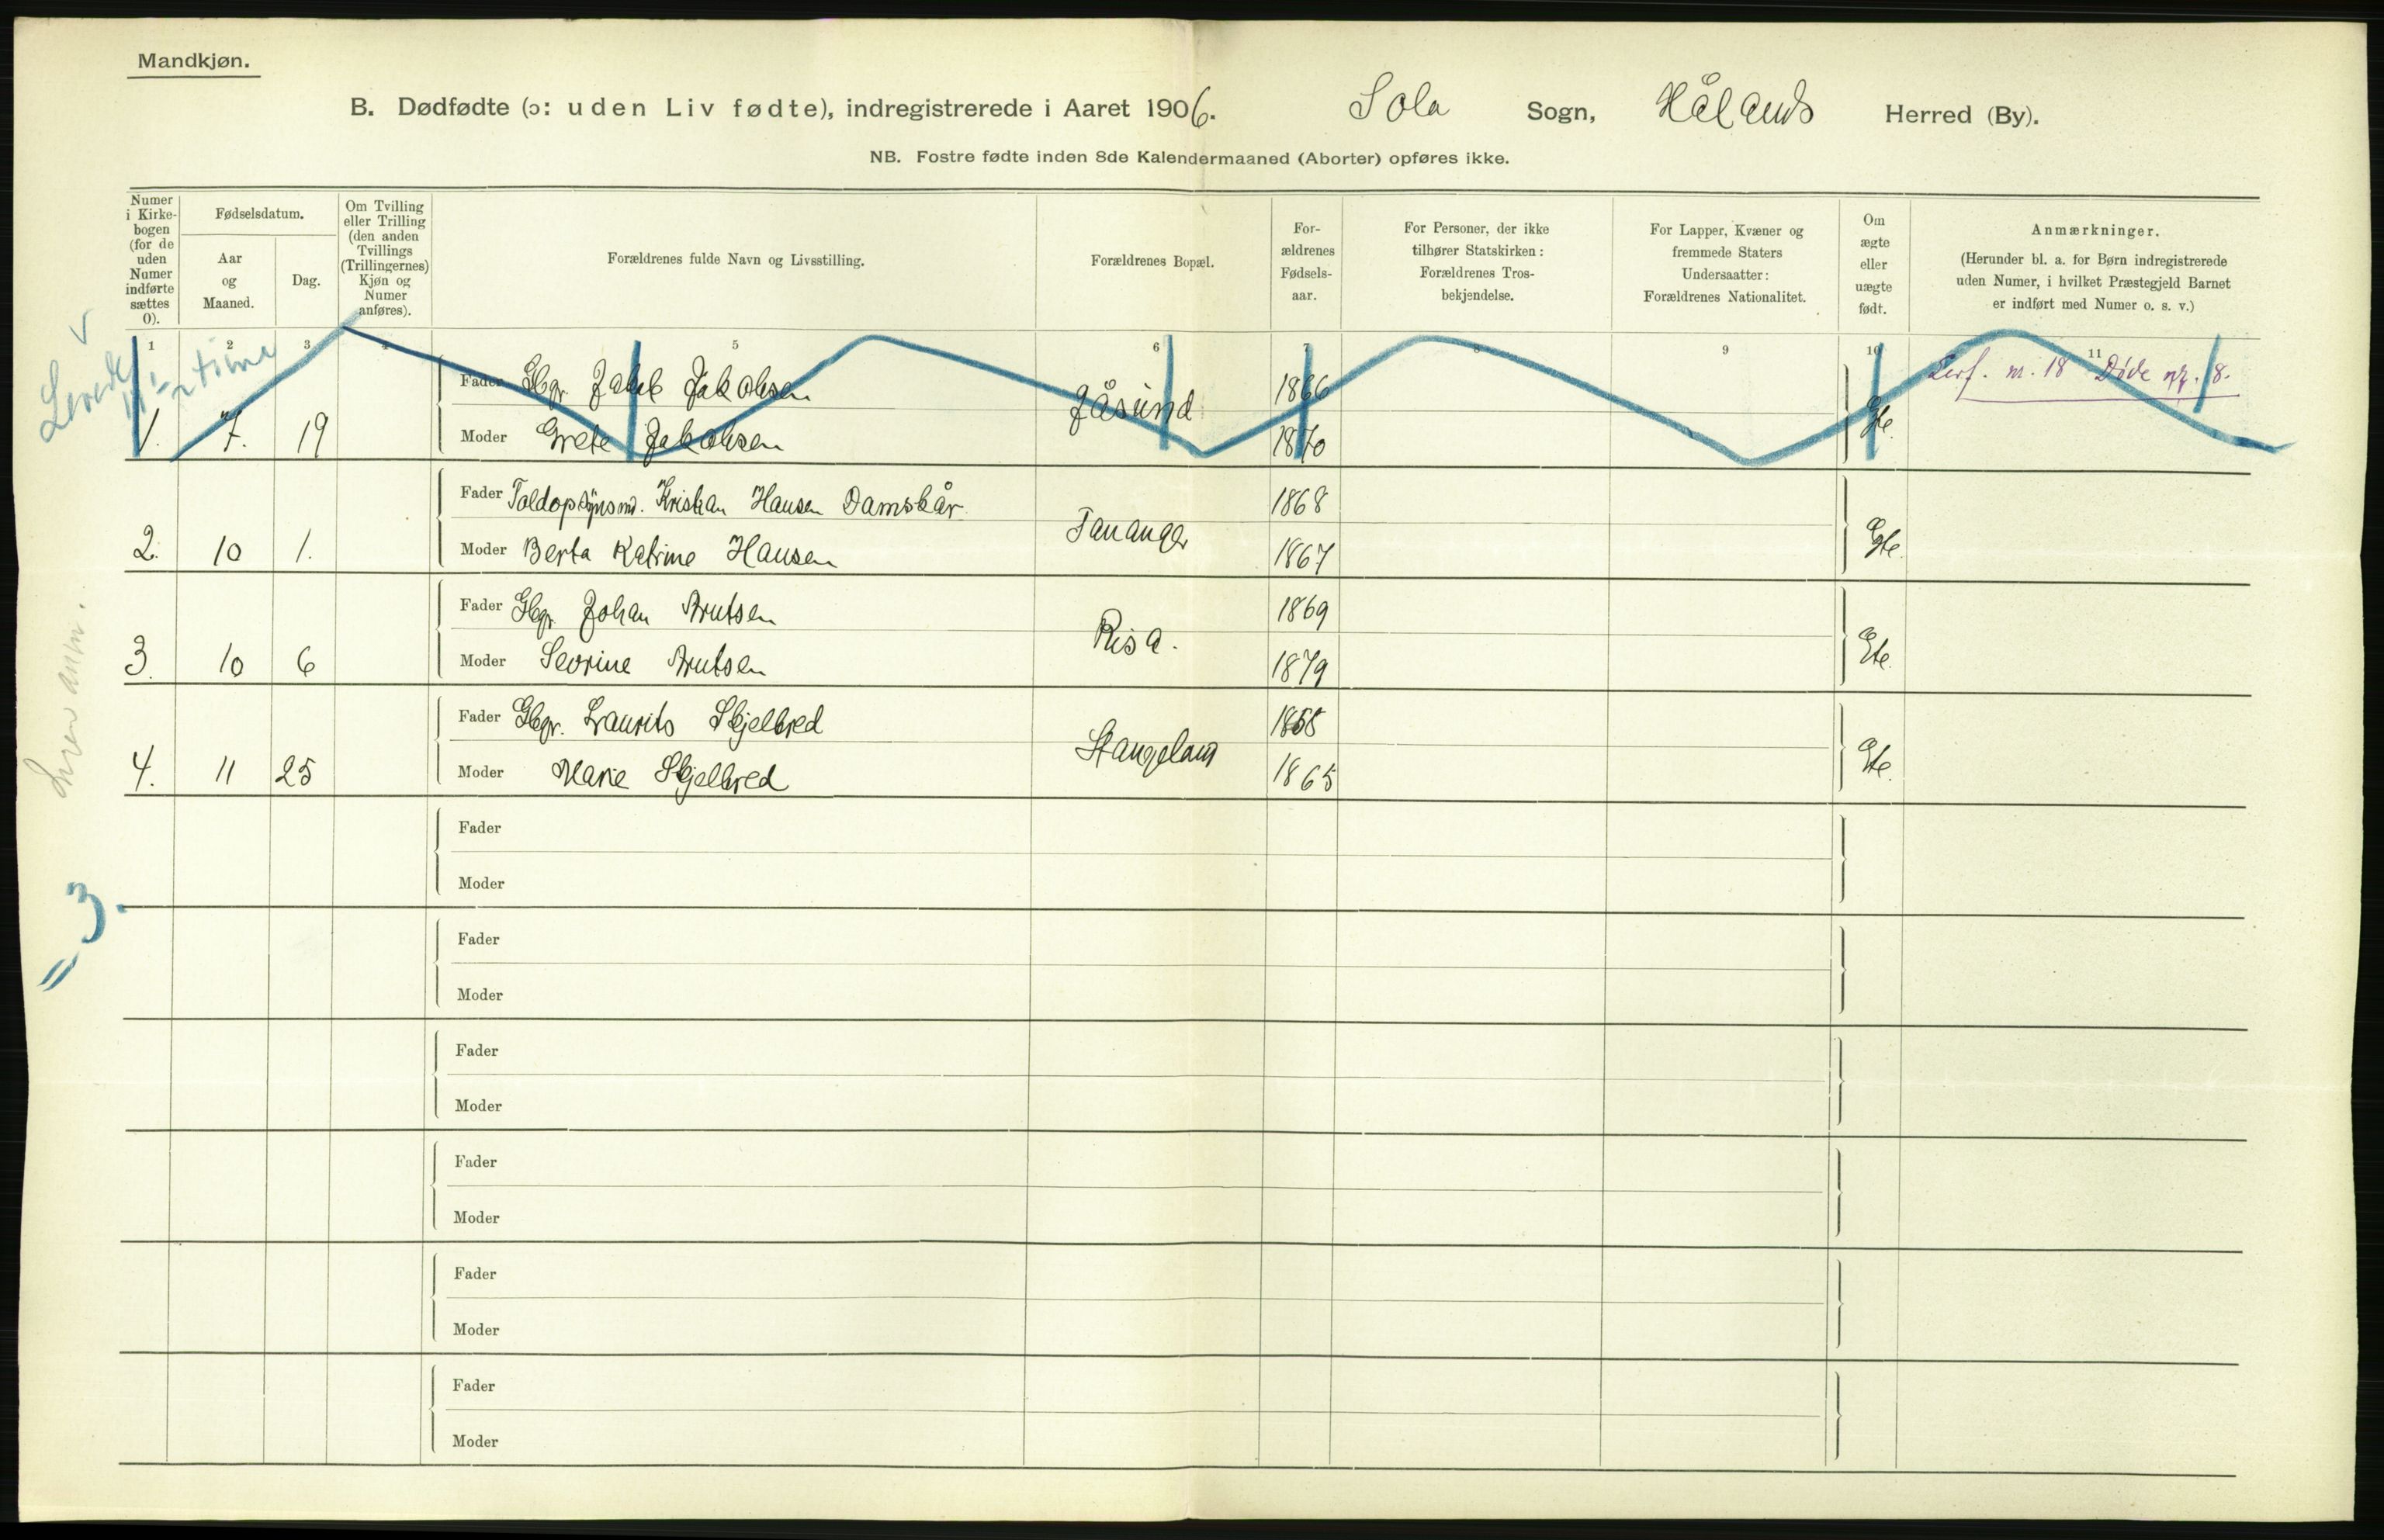 Mandkjøn.
B. Dødfødte (ɔ: uden Liv fødte), indregistrerede i Aaret 1906. Sola Sogn, Hålands Herred (By).
NB. Fostre fødte inden 8de Kalendermaaned (Aborter) opføres ikke.
Numer i Kirkebogen (for de uden Numer indførte sættes 0).
Fødselsdatum.
Aar og Maaned.
Dag.
Om Tvilling eller Trilling (den anden Tvillings (Trillingernes) Kjøn og Numer anføres).
Forældrenes fulde Navn og Livsstilling.
Forældrenes Bopæl.
Forældrenes Fødselsaar.
For Personer, der ikke tilhører Statskirken: Forældrenes Trosbekjendelse.
For Lapper, Kvæner og fremmede Staters Undersaatter: Forældrenes Nationalitet.
Om ægte eller uægte født.
Anmærkninger.
(Herunder bl. a. for Børn indregistrerede uden Numer, i hvilket Præstegjeld Barnet er indført med Numer o. s. v.)
1 2 3 4 5 6 7 8 9 10 11
Levede time
Fader Gbr. Jakob Jakobsen Jåsund 1866 m. 18 Døde nr. 8.
1. 7. 19 Moder Grete Jakobsen 1870 Gte.
Fader Toldopsynsm. Kristian Hansen Damsgår Tananger 1868
2. 10 1. Moder Berta Katrine Hansen 1867 Gte.
Fader Gbr. Johan Brutsen Risa. 1869
3. 10 6 Moder Sevrine Brutsen 1879 Gte.
Fader Gbr. Laurits Skjelbred Stangeland 1858
4. 11 25 Moder Marie Skjelbred 1865 Gte.
Fader
Moder
= 3.
Fader
Moder
Fader
Moder
Fader
Moder
Fader
Moder
Fader
Moder